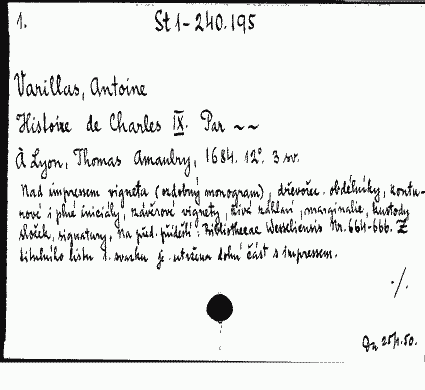 1.
St 1-240.195
Varillas, Antoine
Histoire de Charles IX. Par ~~
À Lyon, Thomas Amaulry, 1684. 12°. 3 sv.
Nad impresem vigneta (ozdobný monogram), dřevořez. obdélníky, kontu-
rové i plné iniciály, závěrové vignety, živá záhlaví, marginalie, kustody
složek, signatury. Na před. přídeští: Bibliothecae Weseliensis Nr. 664-666. Z
titulního listu 1. svazku je utržena dolní část s impresem.
./.
25/1.50.